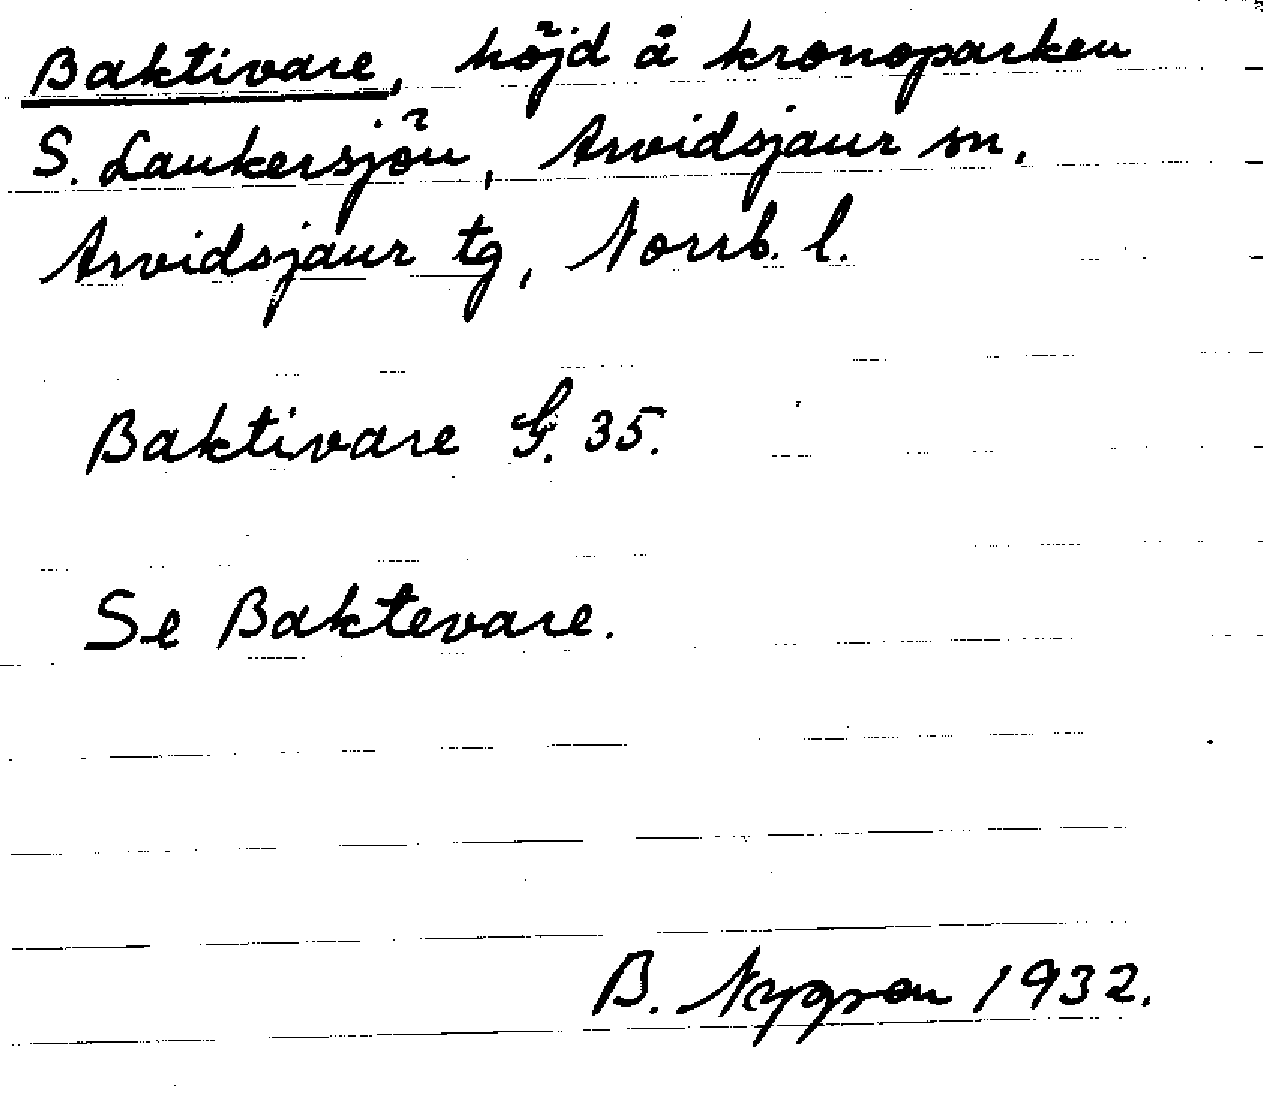 Baktivare, höjd å kronoparken
S. Laukersjön, Arvidsjaur sn,
Arvidsjaur tg, Norrb. l.
Baktivare G. 35.
Se Baktevare.
B. Nygren 1932.